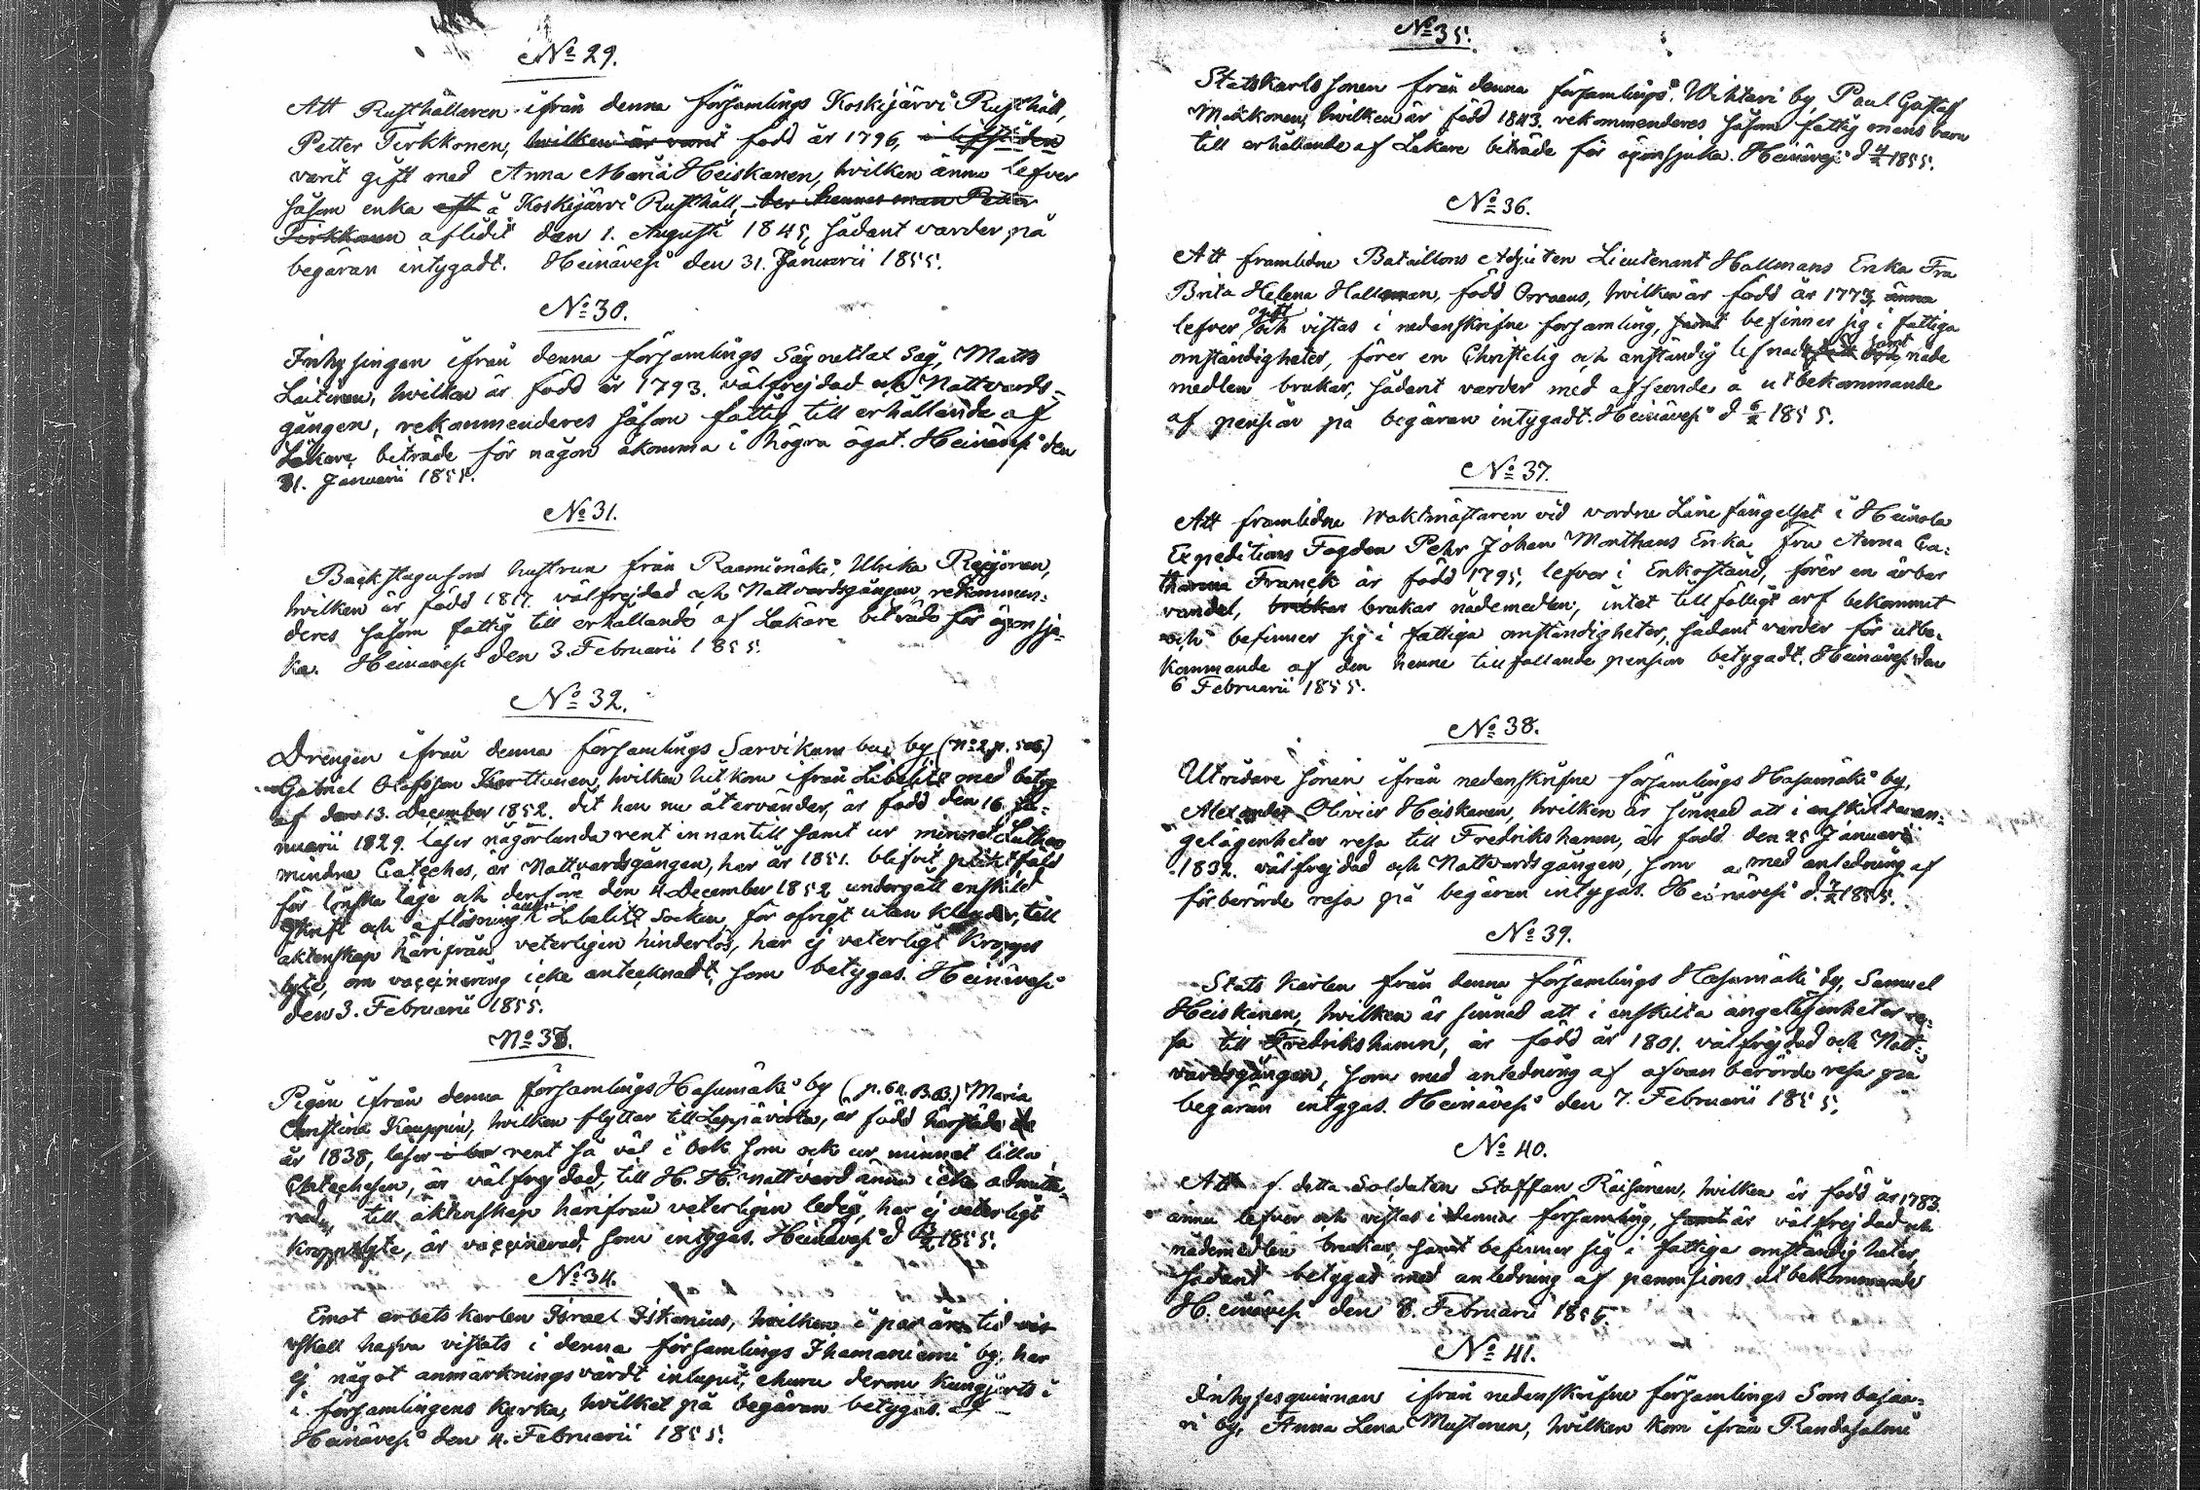 No 29.
Att Rusthållaren ifrån denna församlings Koskijärvi Rusthåll,
Petter Tirkkonen, hvilken är varit född år 1796,
varit gift med Anna Maria Heiskanen, hvilken ännu lefver
såsom enka å Koskijärvi Rusthåll, hennes man Petter
Tirkkonen aflidit den 1. Augusti 1845, sådant varder på
begäran intygadt. Heinävesi den 31. Januarii 1855.
No 30.
Inhysingen ifrån denna församlings Såg, Matts
Laitinen, hvilken är född år 1793. välfrejdad och Nattvards-
gången, rekommenderes såsom fattig till erhållande af
Läkare biträde för någon åkomma i högra ögat. Heinävesi den
31. Januarii 1855.
No 31.
Backstugusord hustrun från Raamimäki, Ulrika
hvilken är född 1817. välfrejdad och Nattvardsgången, rekommen-
deres såsom fattig till erhållande af Läkare biträde för ögonsju-
ka. Heinävesi den 3. Februarii 1855.
No 32.
Drengen ifrån denna församlings Sarvikum by (No 2 p. 506.)
Gabriel Olofsson Karttunen, hvilken hitkom ifrån Libelitz med betyg
af den 13. December 1852. dit han nu återvänder, är född den 16. Ja-
nuarii 1829. läser någorlunda rent innantill samt ur minnet Lutheri
mindre Catechес, är Nattvardsgången, har år 1851. blifvit pliktfäld
för lönska läge och derföre den 4 December 1852 undergått enskild
skrift och aflösning i Libelitz Socken, för öfrigt utan klander, till
äktenskap härifrån veterligen hinderlös, har ej veterligt kropps
lyte, om vaccinering icke antecknadt, som betygas. Heinävesi
den 3. Februarii 1855.
No 33.
Pigan ifrån denna församlings Hasumäki by (p. 62. B.B.) Maria
Christina Kauppin, hvilken flyttar till Leppävirta, är född härstädes
år 1838, läser rent så väl i bok som ock ur minnet lilla
Catechesen, är välfrejdad, till H. H. nattvard ännu icke admitte-
rad, till äktenskap härifrån veterligen ledig, har ej veterligt
kroppslyte, är vaccinerad, som intygas. Heinävesi d 3/2 1855.
No 34.
Emot arbetskarlen Israel Iskanius, hvilken i par års tid
skall hafva vistats i denna församlings Ihamaniemi by, har
ej något anmärkningsvärdt inlupit, churu derom kungjorts
i församlingens kyrka, hvilket på begäran betygas.
Heinävesi den 4. Februarii 1855.
No 35.
Statskarls sonen från denna församlings Wihtari by, Paul Gustaf
Makkonen, hvilken är född 1843. rekommenderes såsom fattig mans barn
till erhållande af Läkare biträde för ögonsjuka. Heinävesi d 4/2 1855.
No 36.
Att framlidne Bataillons Adjuten Lieutenant Hallmans Enka Fru
Brita Helena Hallman, född Orraeus, hvilken är född år 1773, ännu
lefver och vistas i nedanskrifne församling, samt befinner sig i fattiga
omständigheter, förer en Christelig och anständig lefnad samt nåde
medlen brukar, sådant varder med afseende å utbekommande
af pension på begäran intygadt. Heinävesi d 6/2 1855.
No 37.
Att framlidne Waktmästaren vid vordne Läne fängelset i Heinola
Expeditions Fogden Pehr Johan Monthaus Enka Fru Anna Ca-
tharina Franck är född 1795, lefver i Enkestånd, förer en ärbar
vandel, brukar nådemedlen, intet tillfälligt arf bekommit
och befinner sig i fattiga omständigheter, sådant varder för utbe-
kommande af den henne tillfallande pension betygadt. Heinävesi den
6 Februarii 1855.
No 38.
Utridare sonen ifrån nedanskrifne församlings Hasumäki by,
Alexander Olivier Heiskanen, hvilken är sinnad att i enskilta an-
gelägenheter resa till Fredrikshamn, är född den 25 Januarii
1832. välfrejdad och Nattvardsgången, som med anledning af
förberörde resa på begäran intygas. Heinävesi d. 7/2 1855.
No 39.
Stats Karlen från denna församlings Hasumäki by, Samuel
Heiskanen, hvilken är sinnad att i enskilta angelägenheter re-
sa till Fredrikshamn, är född år 1801. välfrejdad och Natt-
vardsgången, som med anledning af ofvan berörde resa på
begäran intygas. Heinävesi den 7. Februarii 1855.
No 40.
Att f. detta Soldaten Staffan Räisänen, hvilken är född år 1783.
ännu lefver och vistas i denna församling, samt är välfrejdad och
nådemedlen brukar, samt befinner sig i fattiga omständigheter,
sådant betygas med anledning af pensions utbekommande
Heinävesi den 8. Februarii 1855.
No 41.
Inhysesquinnan ifrån nedanskrifne församlings Sombasaa-
ri by, Anna Lena Mustonen, hvilken kom ifrån Randasalmi